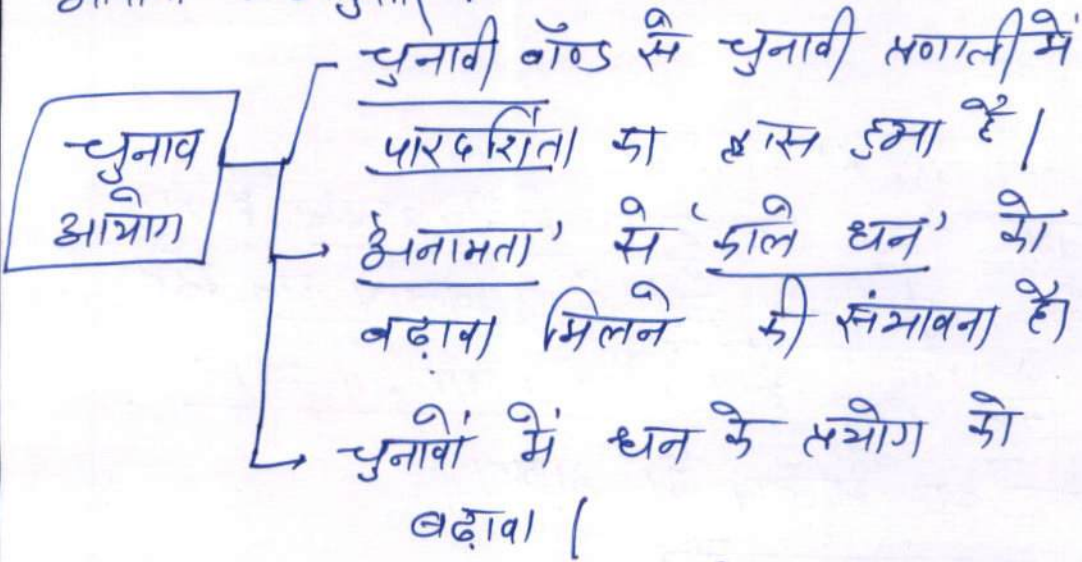 चुनावी बॉण्ड से चुनावी प्रणाली में
पारदर्शिता का ह्रास हुआ है।
चुनाव
आयोग
'अनामता' से 'काले धन' को
बढ़ावा मिलने की संभावना है।
चुनावों में धन के प्रयोग को
बढ़ावा।